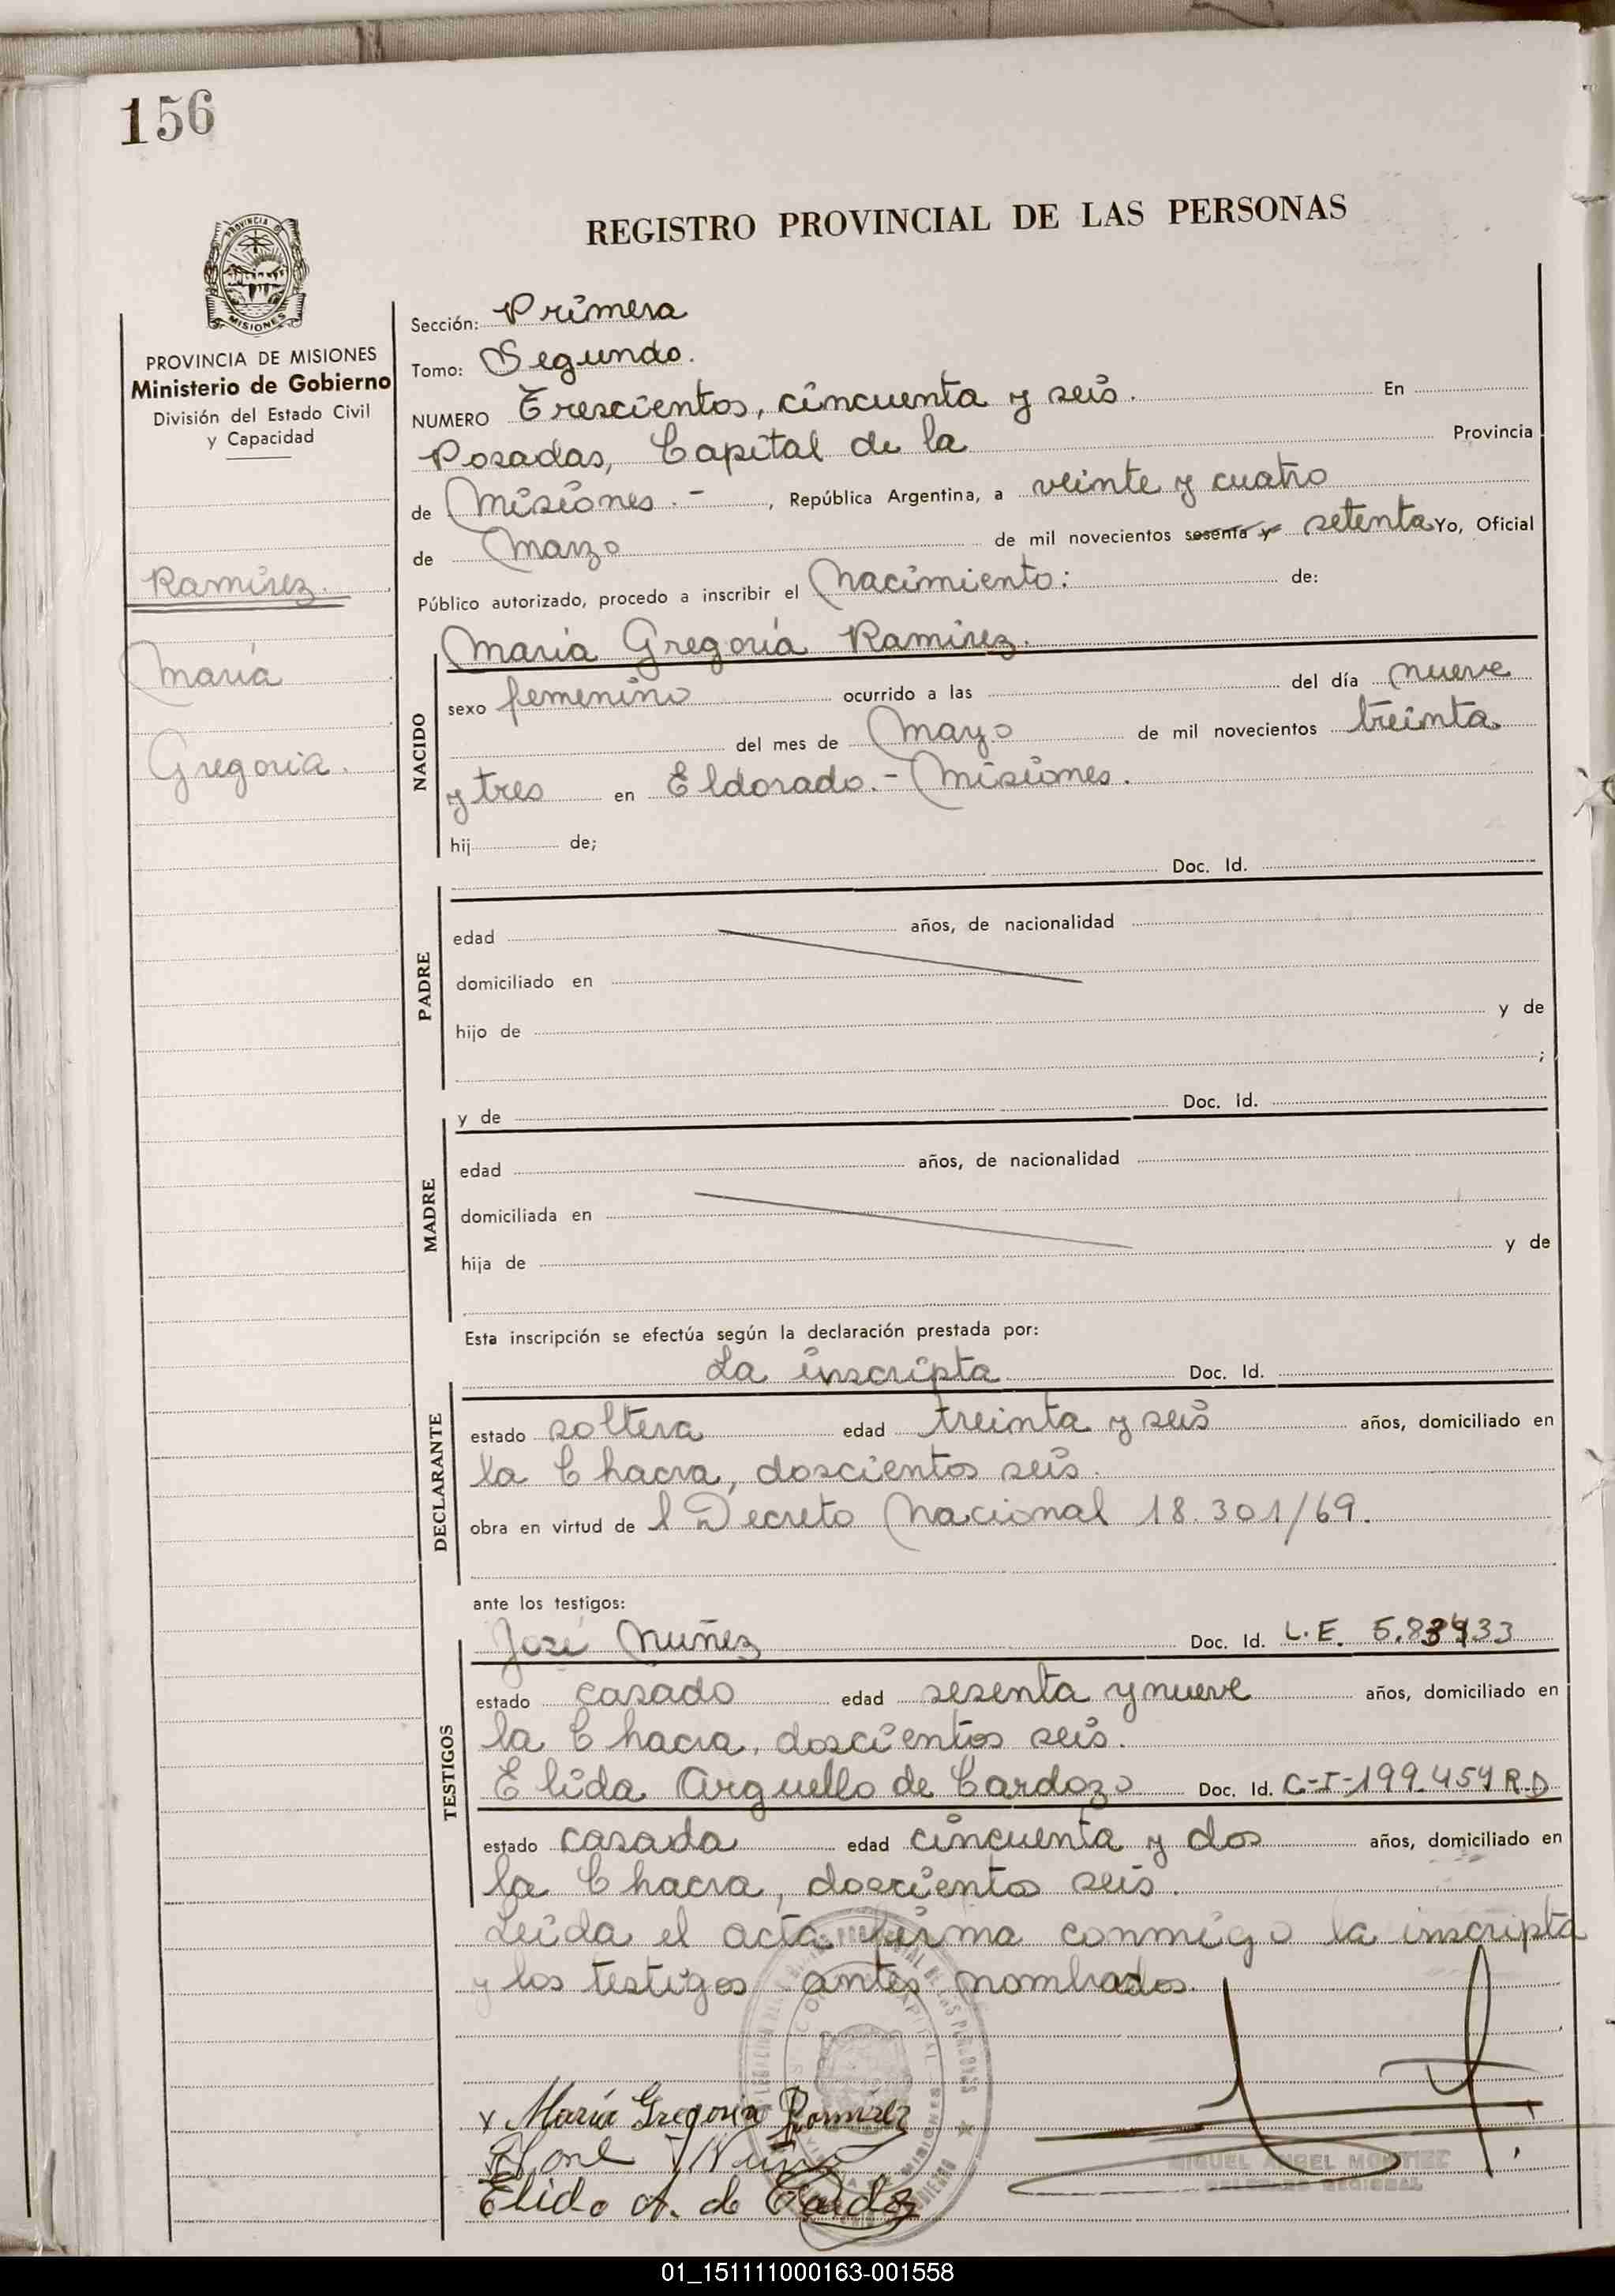 156
REGISTRO PROVINCIAL DE LAS PERSONAS
PROVINCIA
MISIONES
PROVINCIA DE MISIONES
Ministerio de Gobierno
División del Estado Civil
y Capacidad
Ramírez.
María
Gregoria.
Sección: Primera
Tomo: Segundo.
NUMERO Trescientos, cincuenta y seis. En
Posadas, Capital de la Provincia
de Misiones.- , República Argentina, a veinte y cuatro
de Marzo de mil novecientos sesenta y setenta Yo, Oficial
Público autorizado, procedo a inscribir el Nacimiento: de:
María Gregoria Ramírez.
NACIDO
sexo femenino ocurrido a las del día nueve
del mes de Mayo de mil novecientos treinta
y tres en Eldorado.- Misiones.
hij de;
Doc. Id.
PADRE
edad años, de nacionalidad
domiciliado en
hijo de y de
;
y de Doc. Id.
MADRE
edad años, de nacionalidad
domiciliada en
hija de y de
Esta inscripción se efectúa según la declaración prestada por:
La inscripta Doc. Id.
DECLARANTE
estado soltera edad treinta y seis años, domiciliado en
la Chacra, doscientos seis.
obra en virtud de l Decreto Nacional 18.301/69.
ante los testigos:
José Nuñez Doc. Id. L.E.
TESTIGOS
estado casado edad sesenta y nueve años, domiciliado en
la Chacra, doscientos seis.
Elida Arguello de Cardozo Doc. Id. C-I-199.454 R.D
estado casada edad cincuenta y dos años, domiciliado en
la Chacra, doscientos seis.
Leída el acta firma conmigo la inscripta
y los testigos antes nombrados.
x María Gregoria Ramírez
Elido A. de Cardozo
MIGUEL ANGEL
01_151111000163-001558